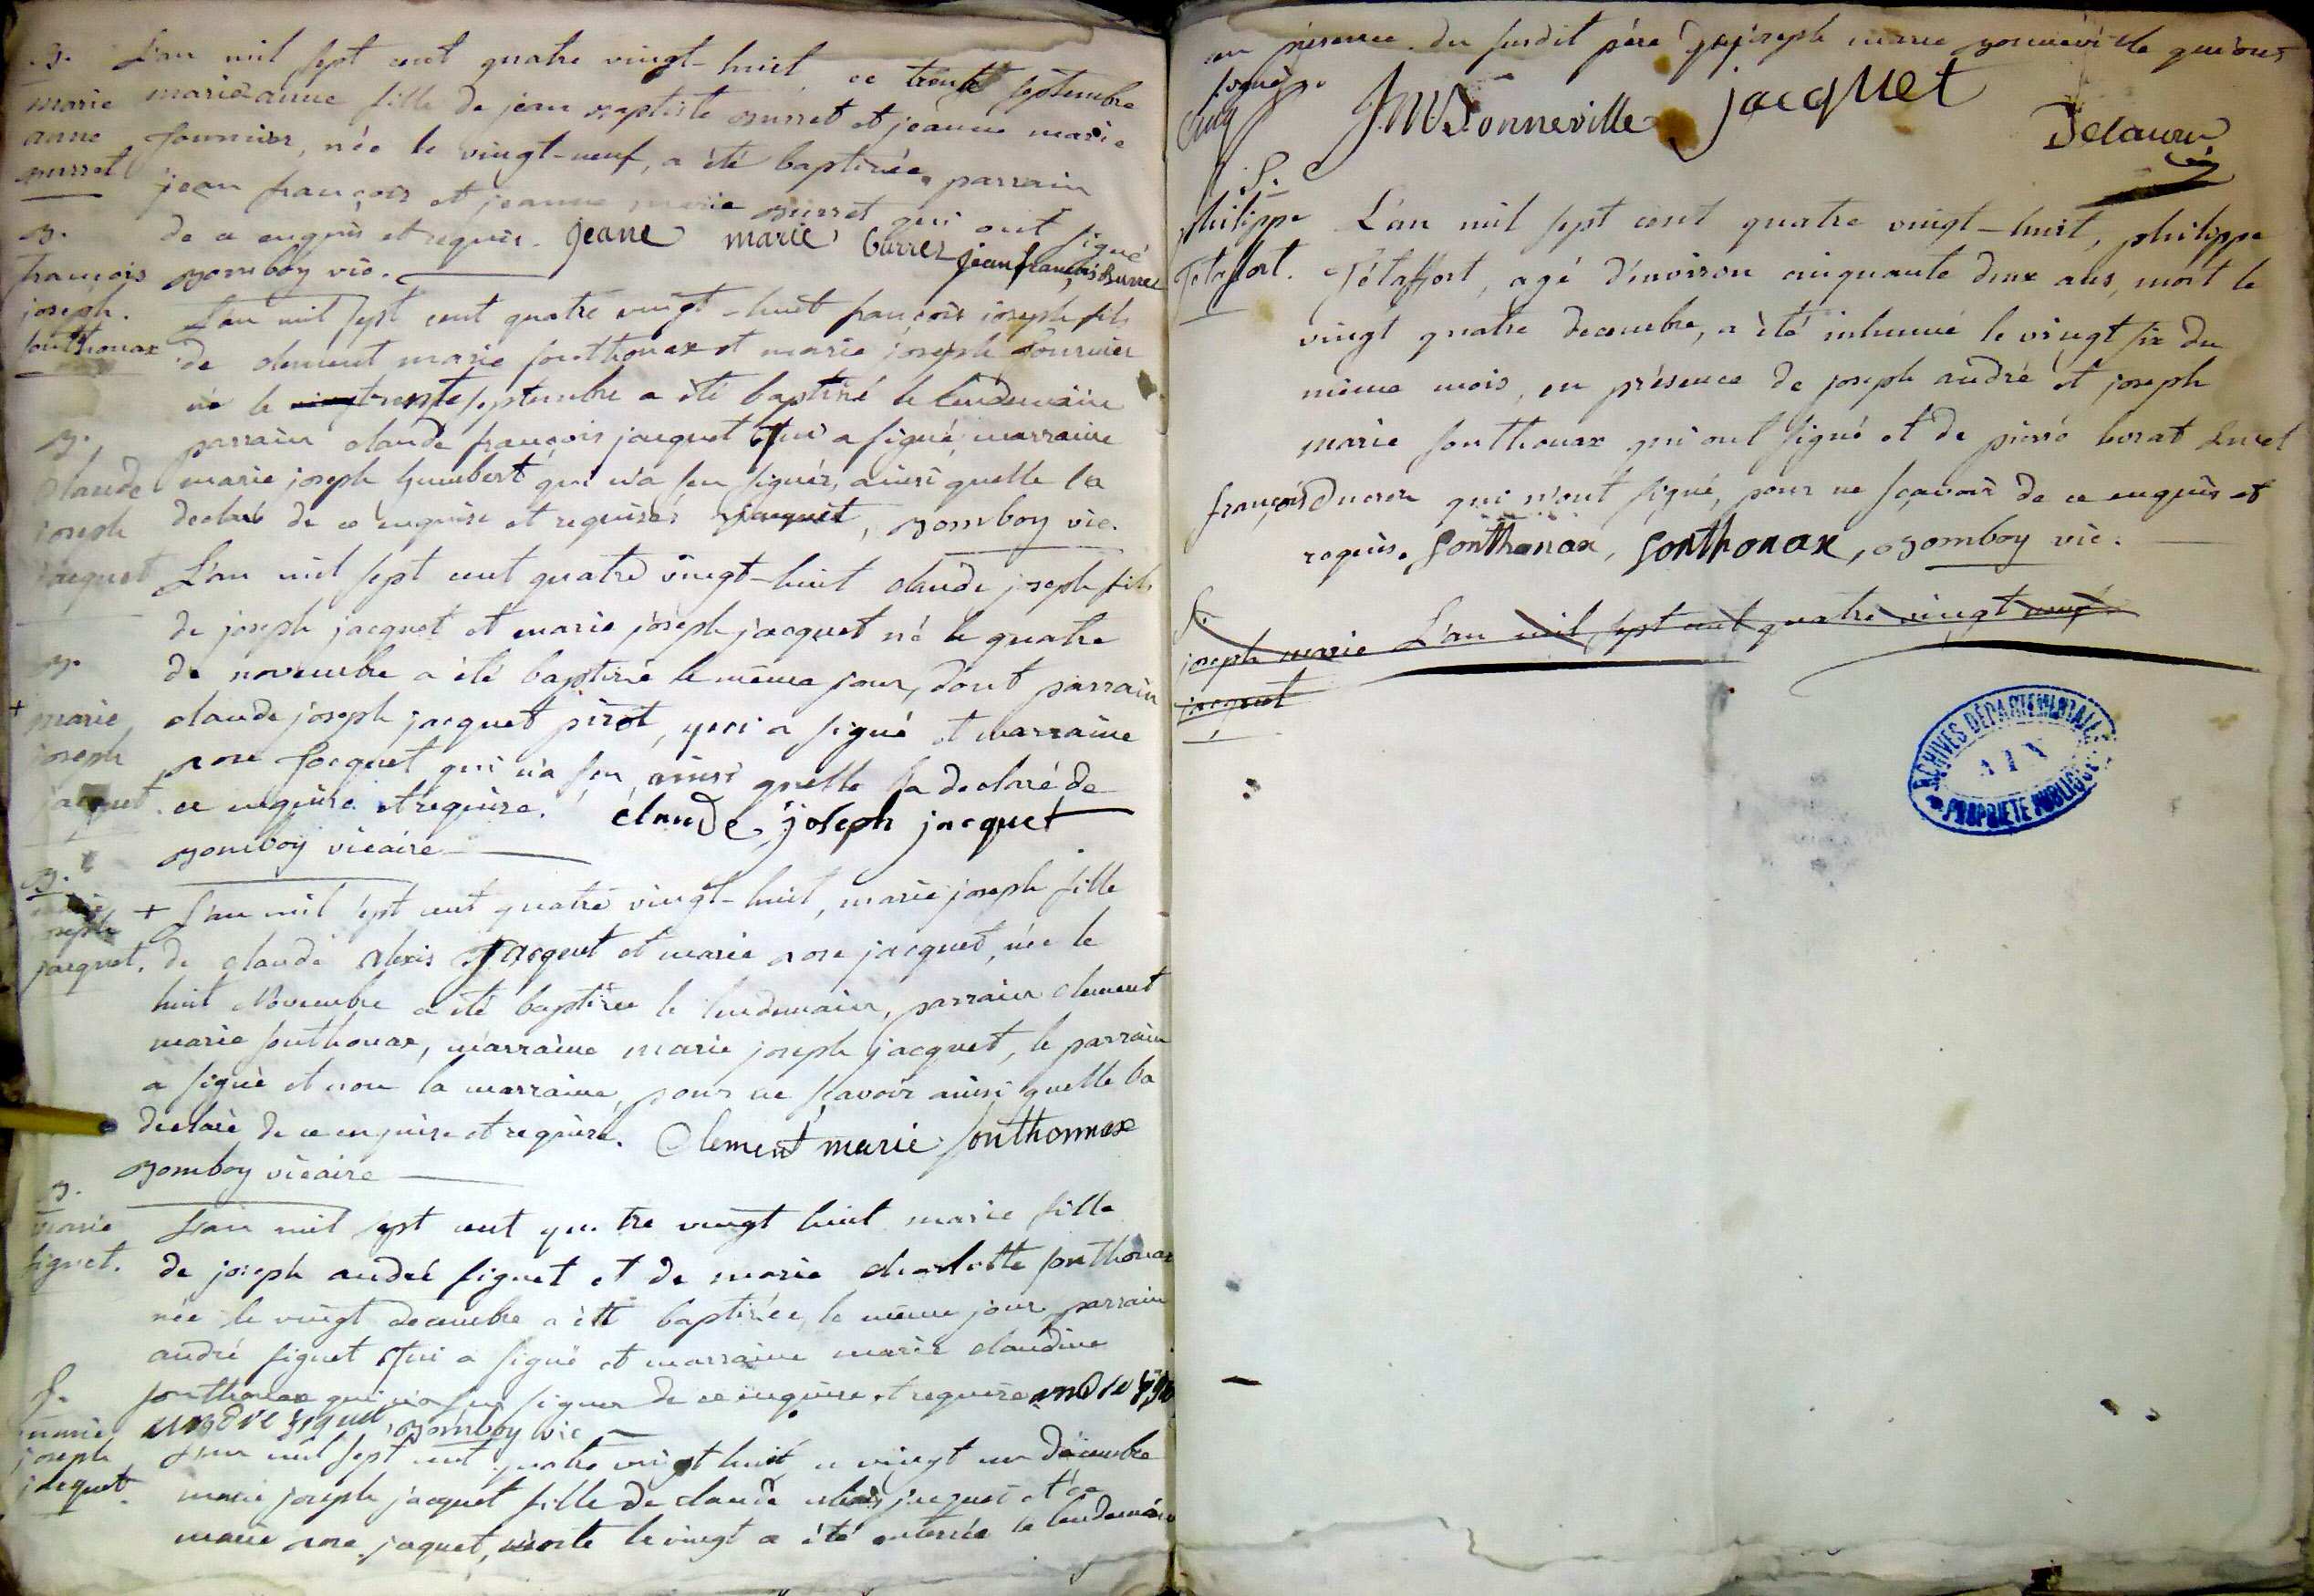 B.
marie
anne
burret
L'an mil sept cent quatre vingt-huit ce trente septembre
marie anne fille de jean baptiste burret et jeanne marie
fournier, née le vingt-neuf, a été baptisée, parrain
jean françois et jeanne marie burret qui ont signé
de ce enquis et requis. jeane marie burret jean françois Burret
Bomboy vic.
B.
françois
joseph.
sonthonax
L'an mil sept cent quatre vingt-huit françois joseph fils
de clement marie sonthonax et marie joseph fournier
né le trente septembre a été baptisé le lendemain
parrain claude françois jacquet qui a signé, marraine
marie joseph humbert qui n'a seu signer, ainsi quelle la
declaré de ce enquise et requise jacquet, Bomboy vic.
B.
Claude
joseph
jacquet
L'an mil sept cent quatre vingt-huit claude joseph fils
de joseph jacquet et marie joseph jacquet né le quatre
de novembre a été baptisé le même jour, dont parrain
claude joseph jacquet pirot, qui a signé et marraine
rose Jacquet qui n'a seu, ainsi quelle la declaré de
ce enquise et requise. claude joseph jacquet
Bomboy vicaire
B.
+ marie
joseph
jacquet
B.
joseph
jacquet.
+ L'an mil sept cent quatre vingt-huit, marie joseph fille
de claude alexis Jacquet et marie rose jacquet, née le
huit Novembre a été baptisée le lendemain, parrain clement
marie sonthonax, marraine marie joseph jacquet, le parrain
a signé et non la marraine, pour ne scavoir ainsi quelle la
declaré de ce enquise et requise. Clement marie sonthonnax
Bomboy vicaire
B.
marie
siguet.
L'an mil sept cent quatre vingt huit marie fille
de joseph andré siguet et de marie charlotte sonthonax
née le vingt decembre a été baptisée le même jour, parrain
andré siguet qui a signé et marraine marie claudine
sonthonax qui n'a seu signer de ce enquise et requise
andre siguet, Bomboy vic
S.
marie
joseph
jacquet.
L'an mil sept cent quatre vingt huit ce vingt un décembre
marie joseph jacquet fille de claude alexis jacquet et de
marie rose jacquet, morte le vingt a été enterrée le lendemain
en présence du susdit père joseph marie bonneville qui ont
signés.
J.M Bonneville jacquet
S.
philippe
Tétaffort.
L'an mil sept cent quatre vingt-huit, philippe
Tétaffort, agé d'environ cinquante deux ans, mort le
vingt quatre decembre, a été inhumé le vingt six du
même mois, en présence de joseph andré et joseph
marie sonthonax qui ont signé et de pierre
françois qui n'ont signé, pour ne sçavoir de ce enquis et
requis. Sonthonax, Sonthonax, Bomboy vic.
S.
joseph marie
jacquet
L'an mil sept cent quatre vingt neuf
ARCHIVES DÉPARTEMENTALES
AIN
PROPRIÉTÉ PUBLIQUE